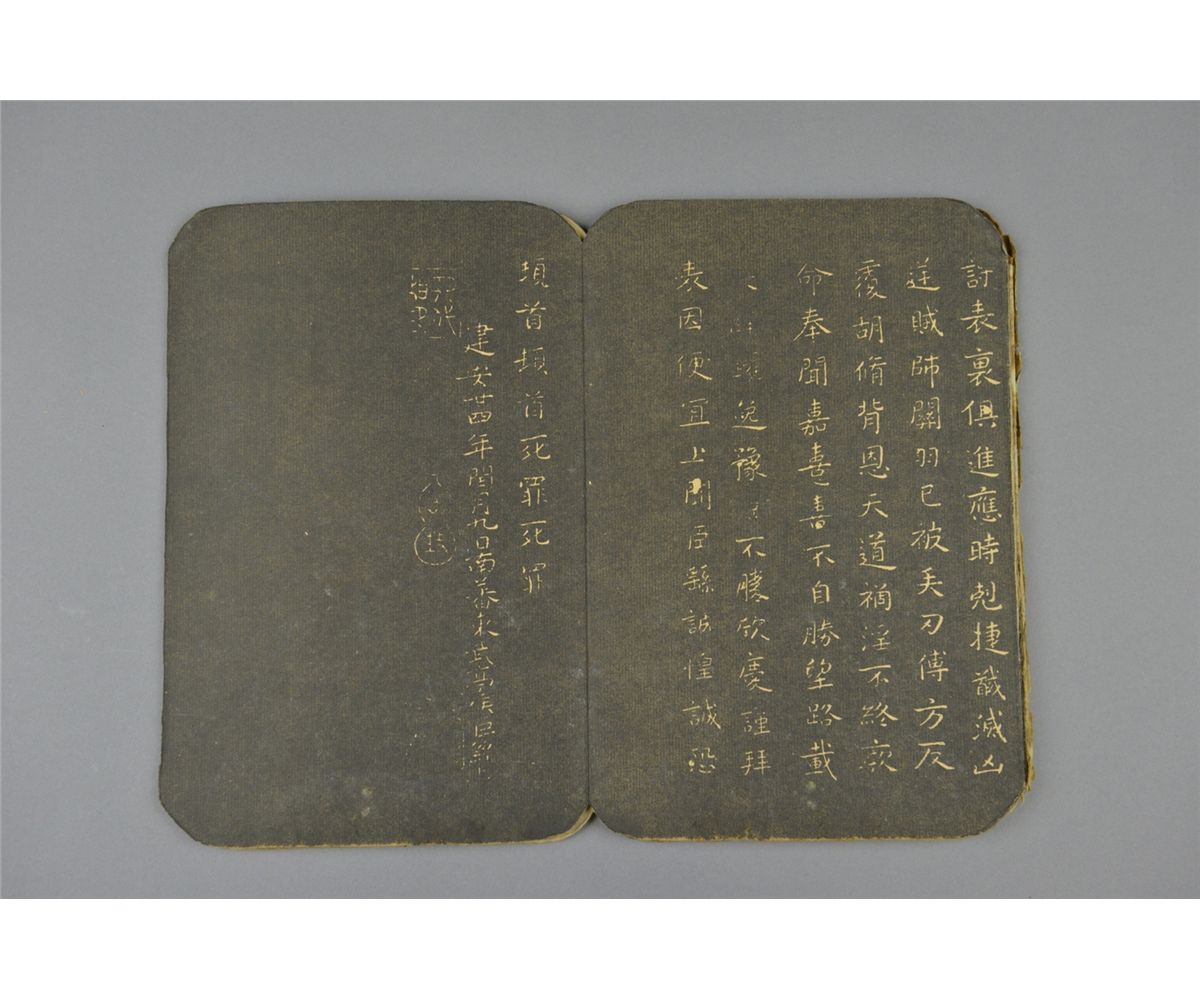 討表裏俱進應時剋捷馘滅凶
逆賊帥關羽已被矢刃傅方反
覆胡脩背恩天道禍淫不終厥
命奉聞嘉憙喜不自勝望路載
踊逸豫不勝欣慶謹拜
表因便宜上聞臣繇誠惶誠恐
頓首頓首死罪死罪
建安廿四年閏月九日南蕃東武亭侯臣繇